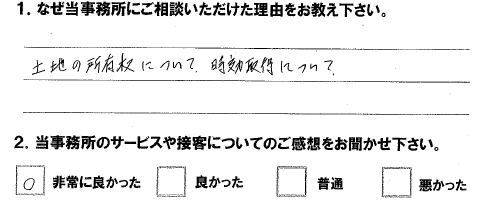 1. なぜ当事務所にご相談いただけた理由をお教え下さい。
土地の所有权について、時効取得について
2. 当事務所のサービスや接客についてのご感想をお聞かせ下さい。
○ 非常に良かった 良かった 普通 悪かった